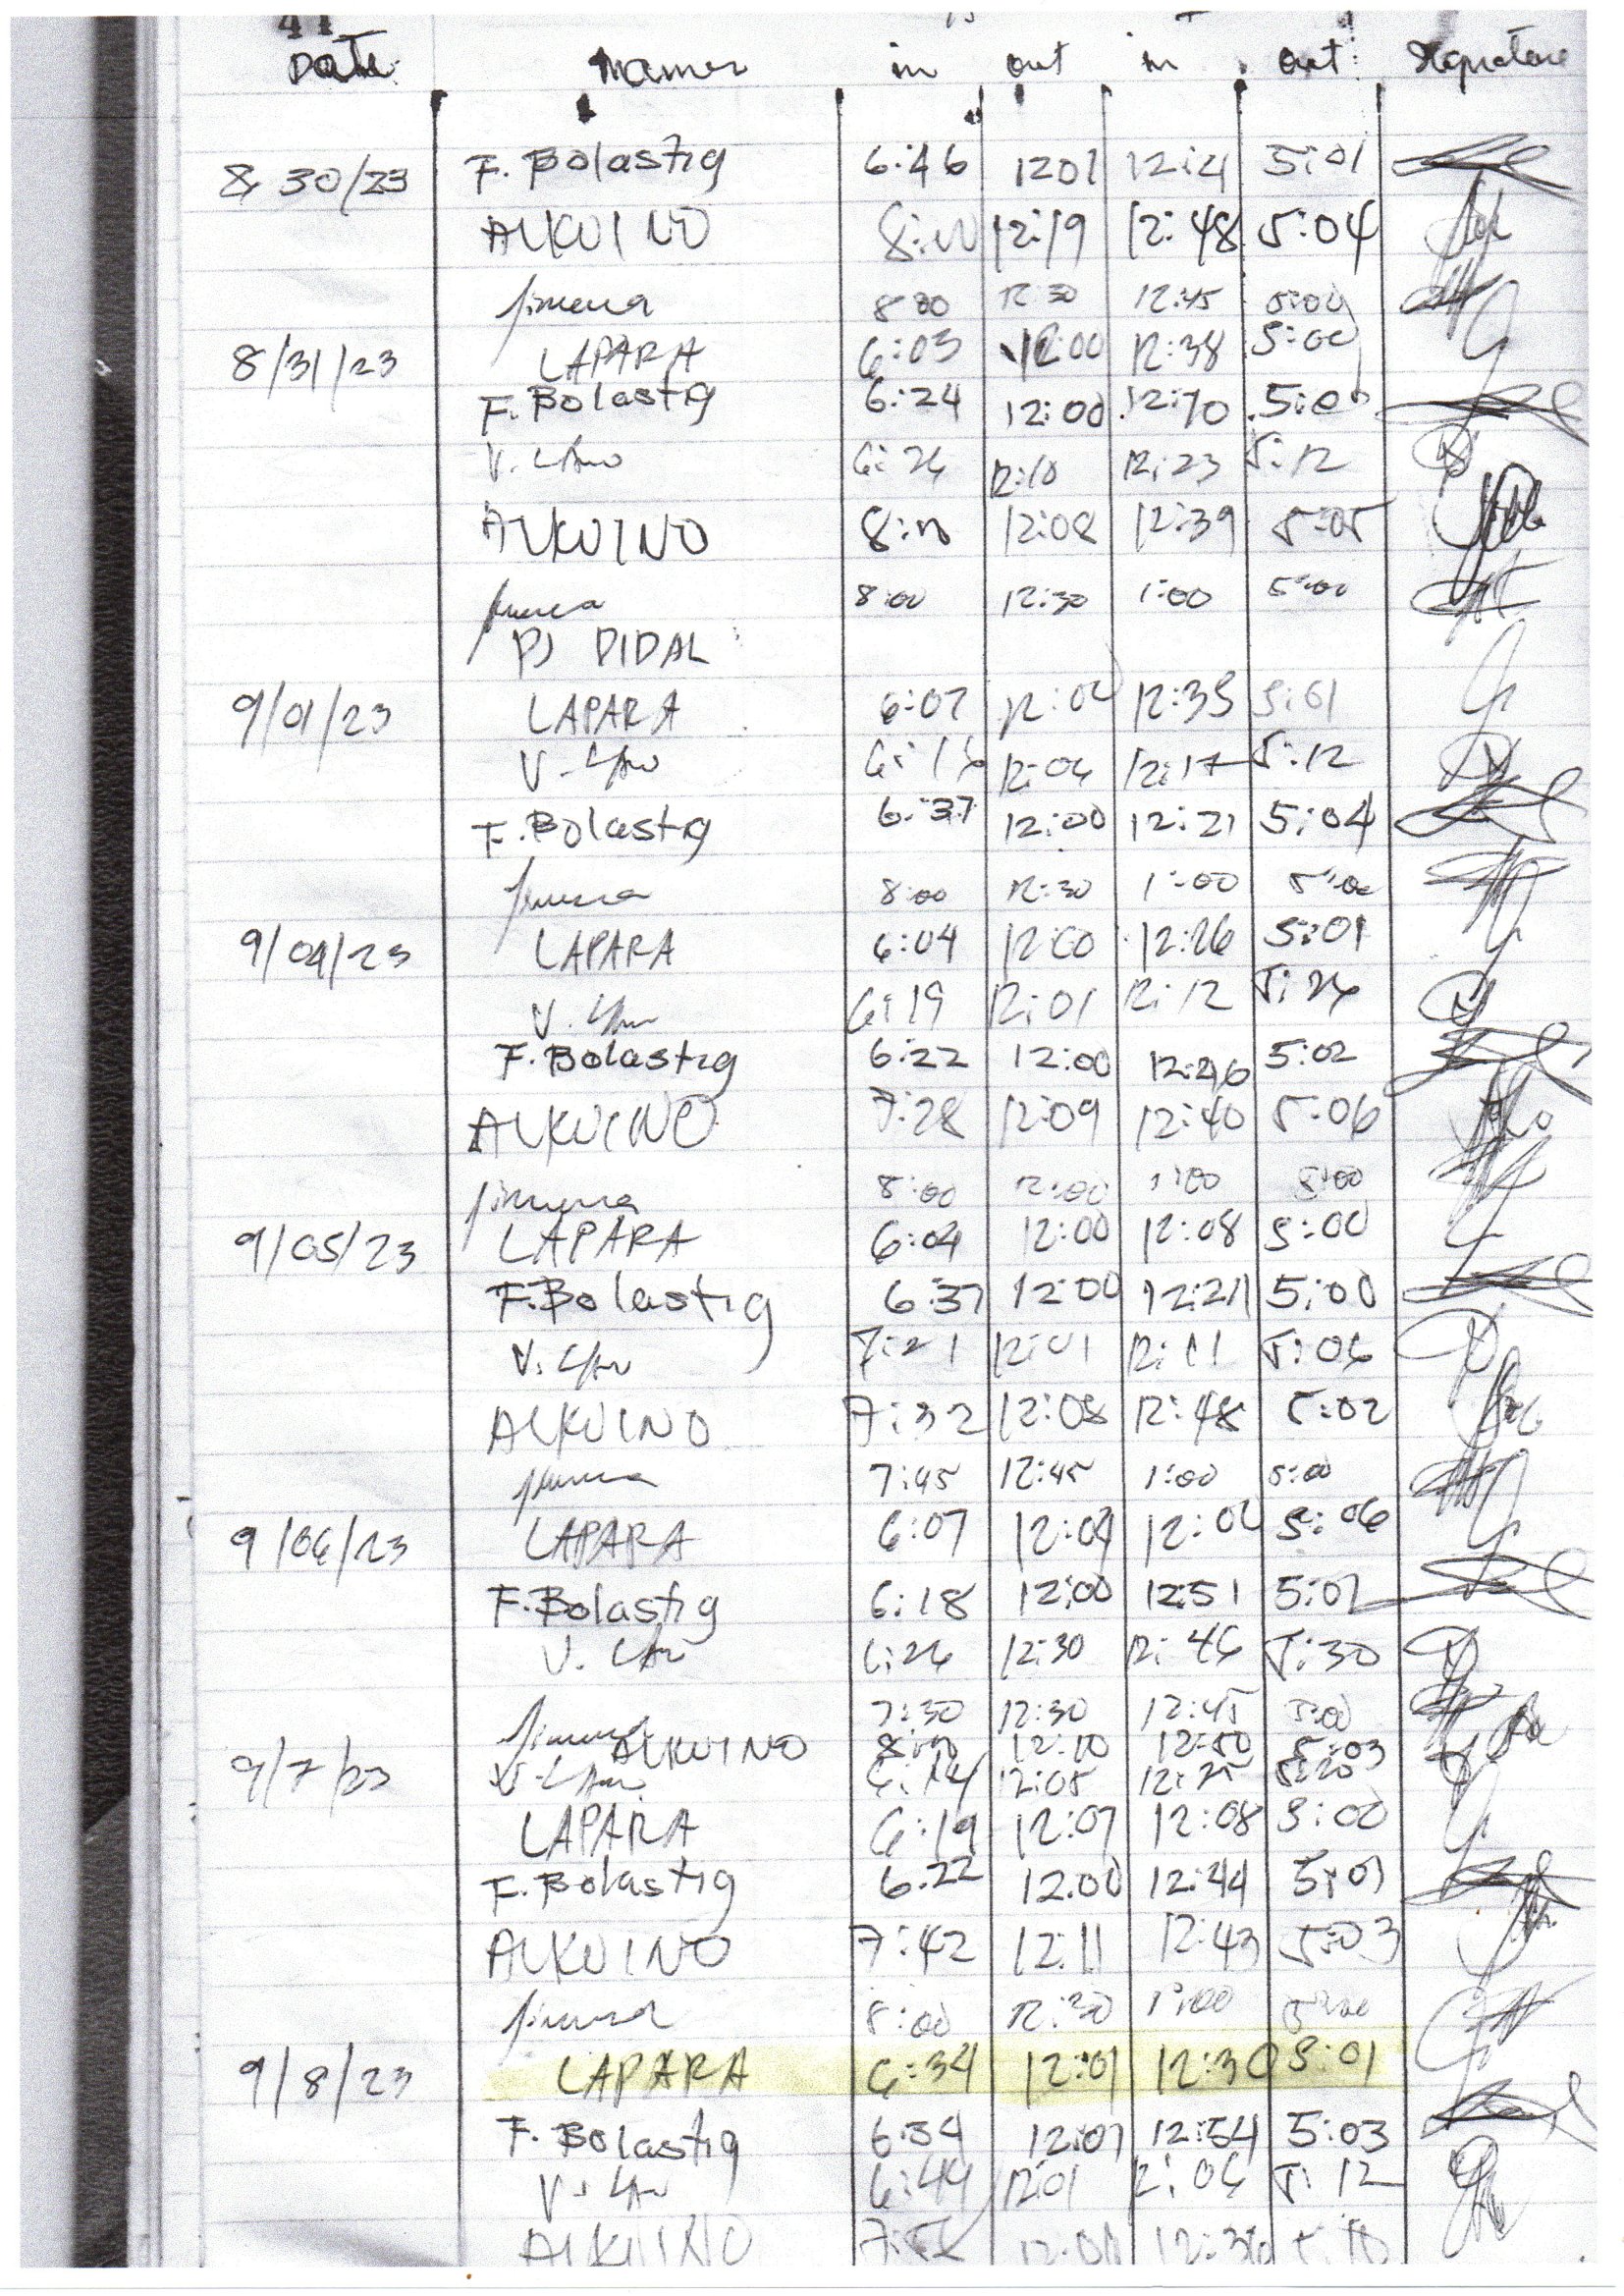 41
Date Names in out in out Signature
8/30/23 F. Bolastig 6:46 1201 12:21 5:01
ALKUINO 8:00 12:19 12:48 5:04
Jimena 8:00 12:30 12:45 5:00
8/31/23 LAPARA 6:03 12:00 12:38 5:00
F. Bolastig 6:24 12:00 12:10 5:00
V. 6:26 12:10 12:23 5:12
ALKUINO 8:00 12:08 12:39 5:05
Jimena 8:00 12:30 1:00 5:00
PJ PIDAL
9/01/23 LAPARA 6:07 12:04 12:35 5:01
V. 6:16 12:06 12:17 5:12
F. Bolastig 6:37 12:00 12:21 5:04
Jimena 8:00 12:30 1:00 5:00
9/04/23 LAPARA 6:04 12:00 12:26 5:01
V. 6:19 12:01 12:12 5:26
F. Bolastig 6:22 12:00 12:46 5:02
ALKUINO 7:28 12:09 12:40 5:06
Jimena 8:00 12:00 1:00 5:00
9/05/23 LAPARA 6:04 12:00 12:08 5:00
F. Bolastig 6:37 12:00 12:21 5:00
V. 7:21 12:01 12:11 5:06
ALKUINO 7:32 12:08 12:48 5:02
Jimena 7:45 12:45 1:00 5:00
9/06/23 LAPARA 6:07 12:04 12:06 5:06
F. Bolastig 6:18 12:00 1251 5:01
V. 6:26 12:30 12:46 5:30
Jimena 7:30 12:30 12:45 5:00
ALKUINO 8:00 12:10 12:50 5:03
9/7/23 V. 6:14 12:05 12:25 5:20
LAPARA 6:19 12:07 12:08 5:00
F. Bolastig 6:22 12:00 12:44 5:01
ALKUINO 7:42 12:11 12:43 5:03
Jimena 8:00 12:30 1:00 5:00
9/8/23 LAPARA 6:34 12:01 12:30 5:01
F. Bolastig 6:54 12:01 12:54 5:03
V. 6:44 12:01 12:06 5:12
ALKUINO 12:36